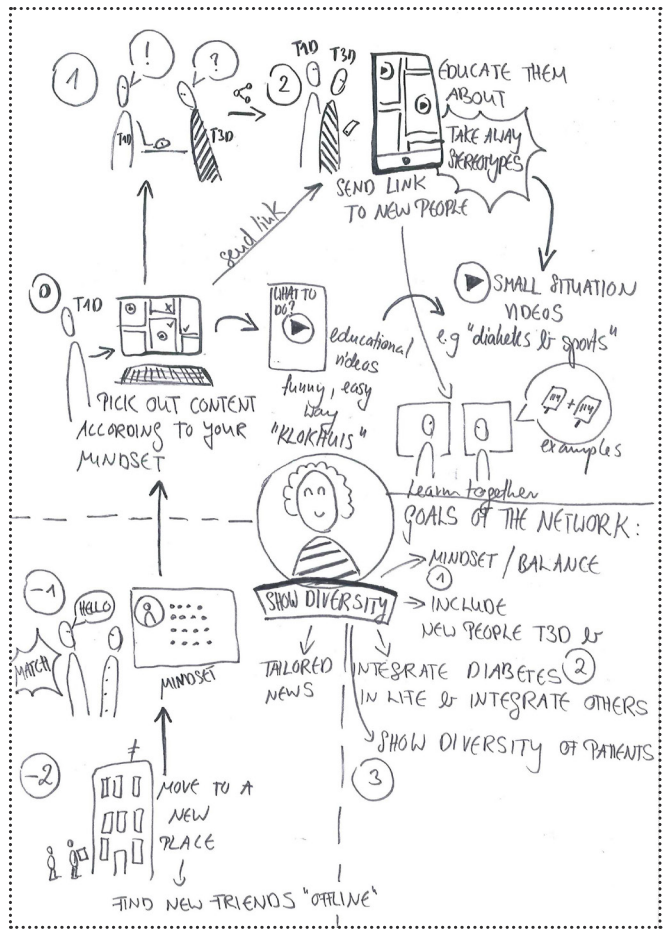 1
!
?
T1D
T3D
2
T1D
T3D
EDUCATE THEM
ABOUT
TAKE AWAY
STEREOTYPES
SEND LINK
TO NEW PEOPLE
send link
0
T1D
PICK OUT CONTENT
ACCORDING TO YOUR
MINDSET
WHAT TO
DO?
educational
videos
funny, easy
way
"KLOKHUIS"
SMALL SITUATION
VIDEOS
e.g "diabetes & sports"
+
examples
Learn together
GOALS OF THE NETWORK:
→ MINDSET / BALANCE
1
→ INCLUDE
NEW PEOPLE T3D &
SHOW DIVERSITY
TAILORED
NEWS
INTEGRATE DIABETES 2
IN LIFE & INTEGRATE OTHERS
SHOW DIVERSITY OF PATIENTS
3
-1
HELLO
MATCH
MINDSET
-2
MOVE TO A
NEW
PLACE
FIND NEW FRIENDS "OFFLINE"